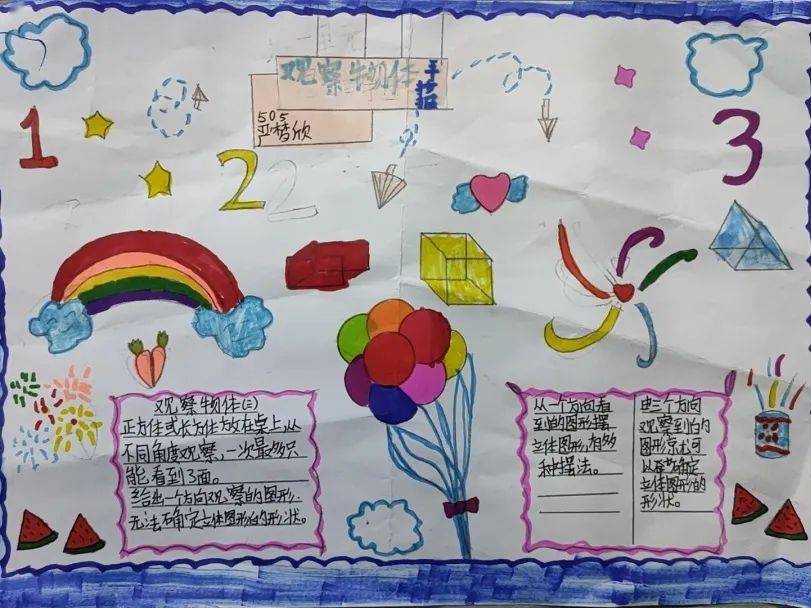 一单元
观察物体手抄报
505
严梦欣
1
2
2
3
观察物体(三)
正方体或长方体放在桌上从
不同角度观察,一次最多只
能看到3面。
给出一个方向观察的图形.
无法确定立体图形的形状。
从一个方向看
到的图形摆
立体图形,有多
种摆法。
由三个方向
观察到的
图形就可
以确定
立体图形的
形状。